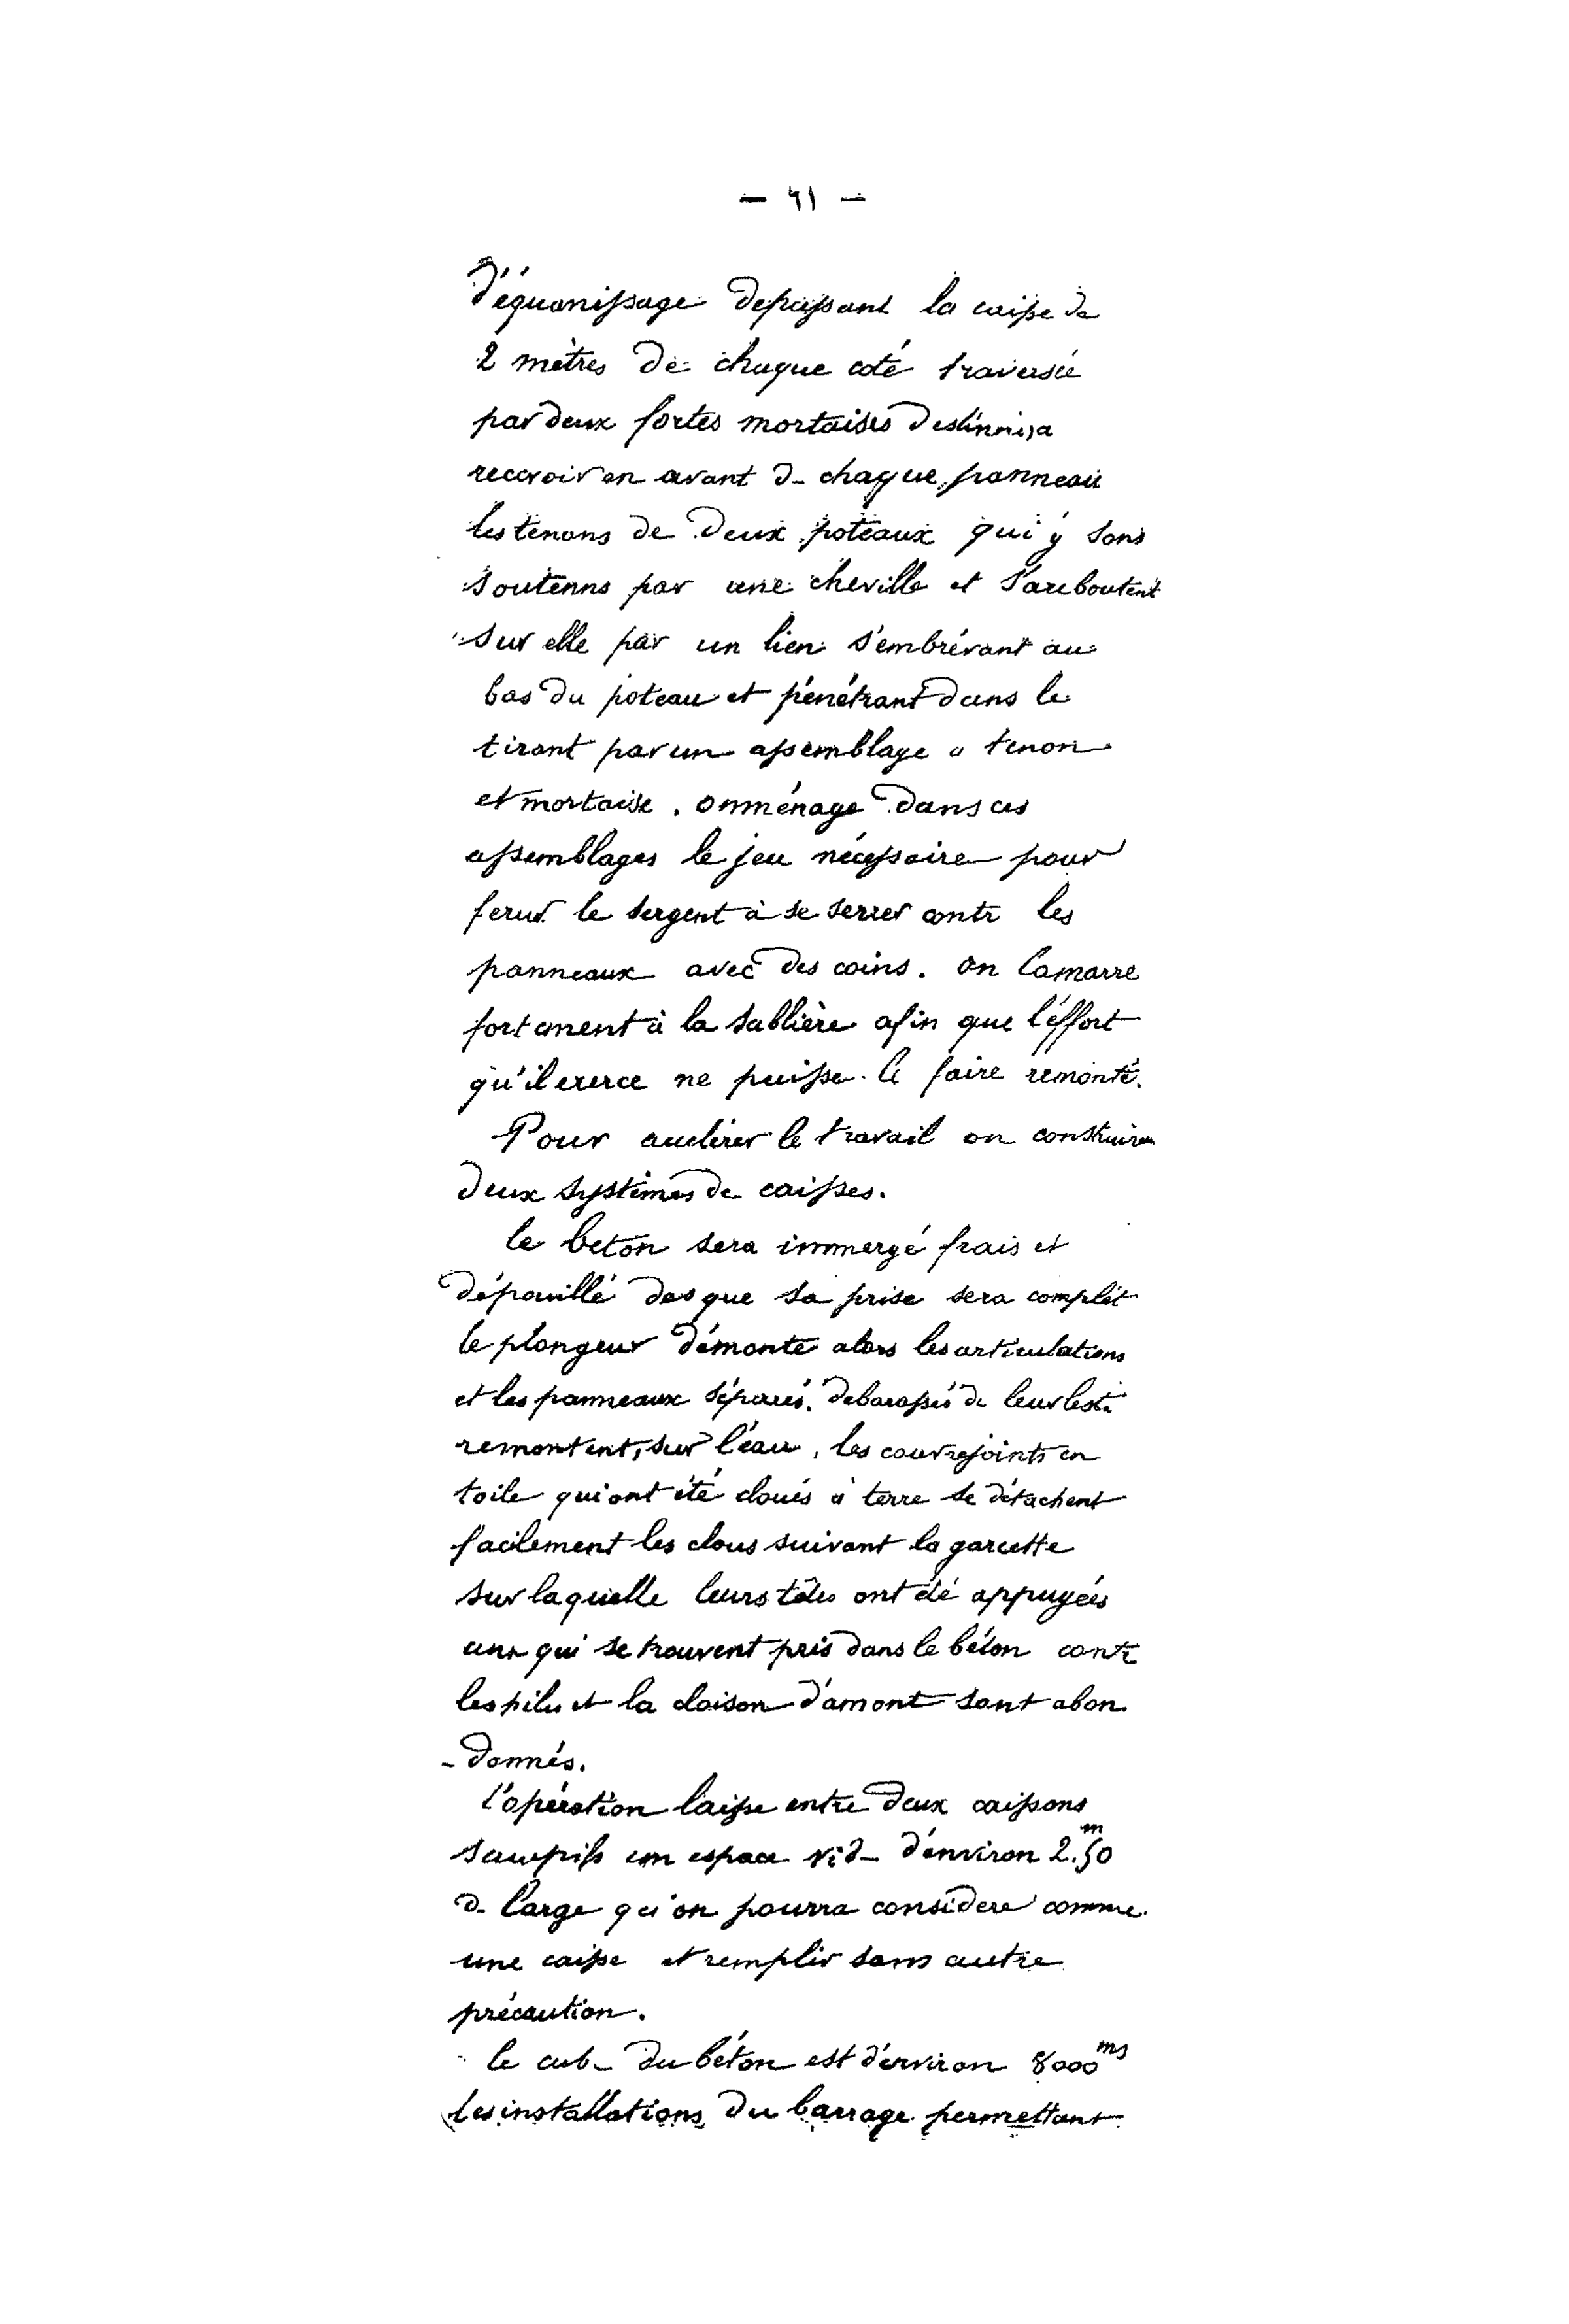 — 41 —
d'équarrissage dépassant la caisse de
2 mètres de chaque coté traversée
par deux fortes mortaises destinnées a
recevoir en avant de chaque panneau
les tenons de deux poteaux qui y sont
soutenus par une cheville et s'arcboutent
sur elle par un lien s'embrévant au
bas du poteau et pénétrant dans le
tirant par un assemblage a tenon
et mortaise. on ménage dans ces
assemblages le jeu nécessaire pour
le sergent à se serrer contre les
panneaux avec des coins. on l'amarre
fortement à la sablière afin que l'éffort
qu'il exerce ne puisse le faire remonté.
Pour accélérer le travail on construira
deux systèmes de caisses.
le beton sera immergé frais et
dépouillé des que sa prise sera complèt
le plongeur démonte alors les articulations
et les panneaux séparés, debarassés de leur leste
remontent, sur l'eau, les couvrejoints en
toile qui ont été cloués à terre se détachent
facilement les clous suivant la garcette
sur laquelle leurs têtes ont été appuyées
ceux qui se trouvent pris dans le béton contre
les piles et la cloison d'amont sont aban
- donnés.
l'opération laisse entre deux caissons
un espace vide d'environ 2.m50
de large qu'on pourra considere comme
une caisse et remplir sans autre
précaution.
le cube du béton est d'environ 8000m3
les installations du barrage permettant